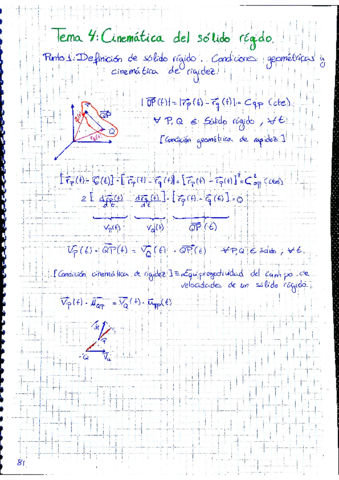 Tema 4: Cinemática del sólido rígido.
Punto 1: Definición de sólido rígido. Condiciones geométricas y
cinemática de rigidez:
|QP(t)| = |r_p(t) - r_q(t)| = C_qp (cte)
∀ P, Q ∈ Sólido rígido, ∀ t.
[Condición geométrica de rigidez]
P
QP
Q
[r_p(t) - r_q(t)] · [r_p(t) - r_q(t)] = [r_p(t) - r_q(t)]² = C²_qp (cte)
2 [dr_p(t)/dt - dr_q(t)/dt] · [r_p(t) - r_q(t)] = 0
V_p(t) V_q(t) QP(t)
V_p(t) · QP(t) = V_Q(t) · QP(t) ∀ P, Q ∈ Sólido, ∀ t.
[Condición cinemática de rigidez] ≡ Equiproyectividad del campo de
velocidades de un sólido rígido.
V_p(t) · u_QP = V_Q(t) · u_QP(t)
Q
81